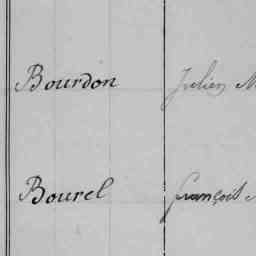 Bourdon Julien M
Bourel françois